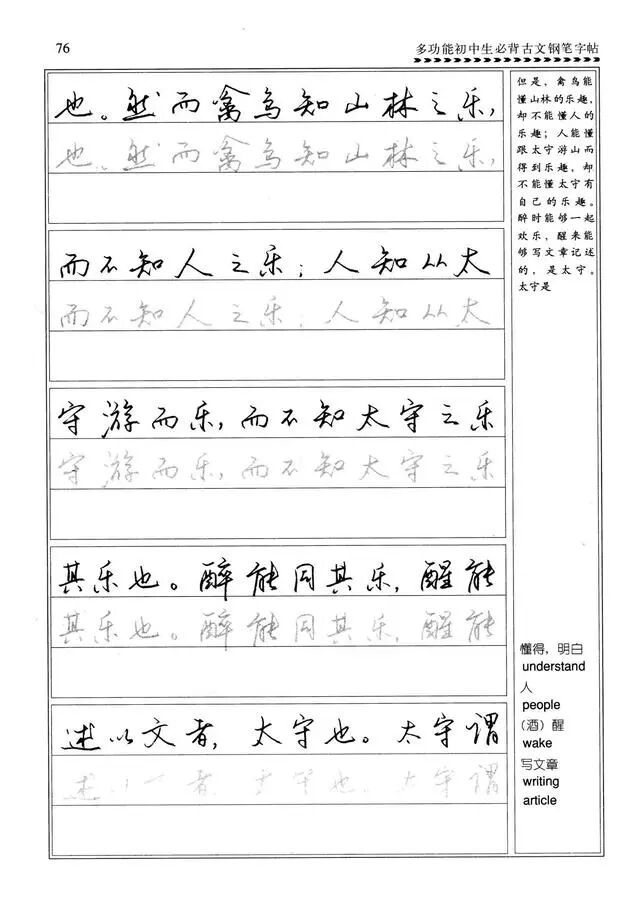 76
多功能初中生必背古文钢笔字帖
也。然而禽鸟知山林之乐,
也。然而禽鸟知山林之乐,
而不知人之乐;人知从太
而不知人之乐;人知从太
守游而乐,而不知太守之乐
守游而乐,而不知太守之乐
其乐也。醉能同其乐,醒能
其乐也。醉能同其乐,醒能
述以文者,太守也。太守谓
述以一者 太守也。太守谓
但是,禽鸟能
懂山林的乐趣,
却不能懂人的
乐趣;人能懂
跟太守游山而
得到乐趣,却
不能懂太守有
自己的乐趣。
醉时能够一起
欢乐,醒来能
够写文章记述
的,是太守。
太守是
懂得,明白
understand
人
people
(酒)醒
wake
写文章
writing
article